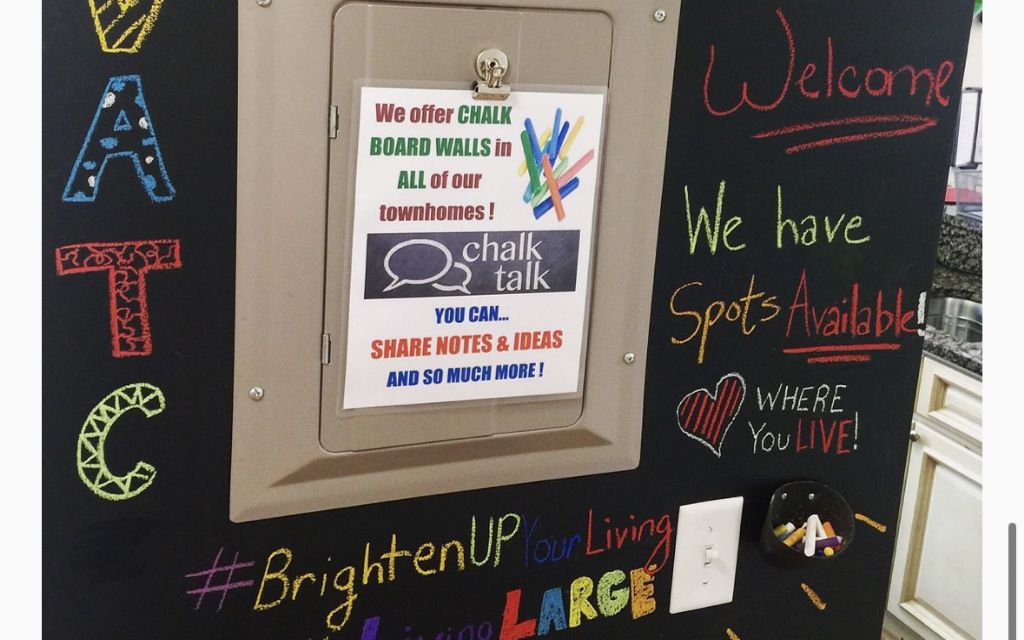 A
T
C
We offer CHALK
BOARD WALLS in
ALL of our
townhomes !
chalk
talk
YOU CAN...
SHARE NOTES & IDEAS
AND SO MUCH MORE !
Welcome
We have
Spots Available
WHERE
YOU LIVE!
#BrightenUPYourLiving
Living LARGE